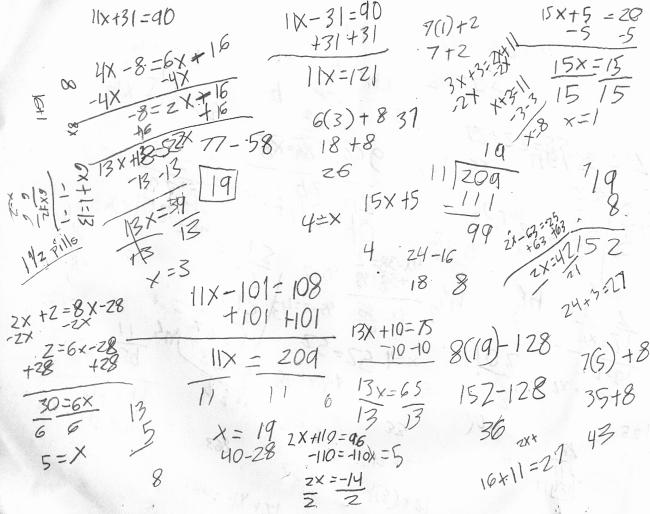 11x+31=90
11x-31=90
+31 +31
11x=121
7(1)+2
7+2
15x+5=20
-5 -5
15x=15
15 15
x=1
4x-8=6x+16
-4x -4x
-8=2x+16
+16 +16
8
8x
3x+3=2x+11
-2x -2x
x+3=11
-3=-3
x=8
6(3)+8 37
18+8
26
77-58
19
-13 -13
13x=39
13 13
x=3
6x+1=13
-1 -1
1 1/2 pills
4=x
4
15x+5
24-16
18 8
19
11 209
111
99
7
19
8
152
2x-63=25
+63 +63
2x=42
21
24+3=27
2x+2=8x-28
-2x -2x
2=6x-28
+28 +28
30=6x
6 6
5=x
13
5
8
11x-101=108
+101 +101
11x=209
11 11
x=19
40-28
6
13x+10=75
-10-10
13x=65
13 13
x=5
2x+110=96
-110=-110
2x=-14
2 2
8(19)-128
152-128
36
2x+
16+11=27
7(5)+8
35+8
43